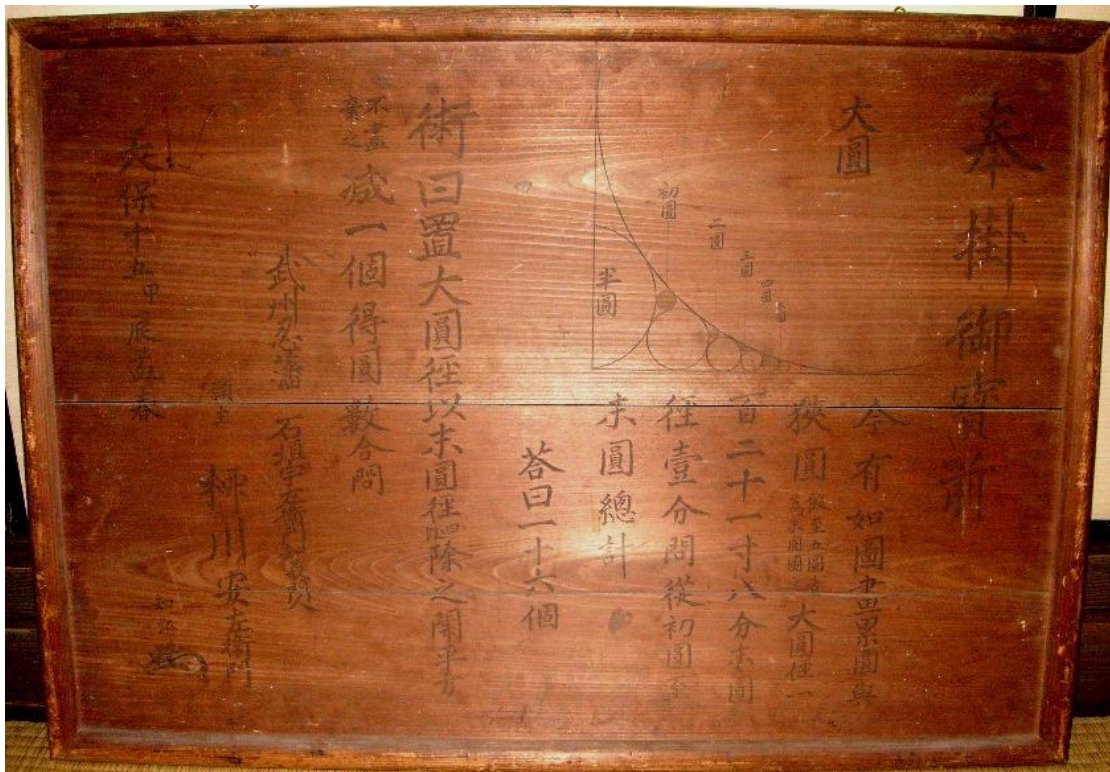 奉掛御寳前
大圓
初圓
二圓
三圓
四圓
半圓
今有如圖畫累圓與
狹圓 大圓径一
百二十一寸八分末圓
径壹分問從初圓至
末圓總計
荅曰一十六個
術曰置大圓径以末圓径 除之開平方
不盡
棄之
減一個得圓數合問
武州忍藩
願主
柳川安左衛門
天保十五甲辰孟春